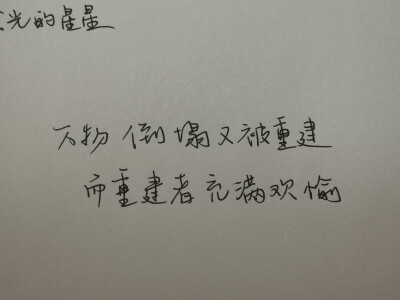 光的星星
万物倒塌又被重建
而重建者充满欢愉